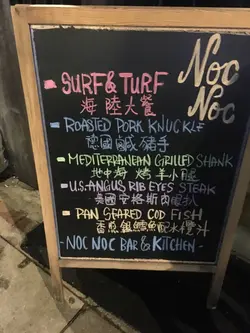 NOC NOC
- SURF & TURF
海陸大餐
- ROASTED PORK KNUCKLE
德國鹹豬手
- MEDITERRANEAN GRILLED SHANK
地中海烤羊小腿
- U.S. ANGUS RIB EYES STEAK
美國安格斯肉眼扒
- PAN SEARED COD FISH
香煎銀鱈魚配水欖汁
- NOC NOC BAR & KITCHEN -